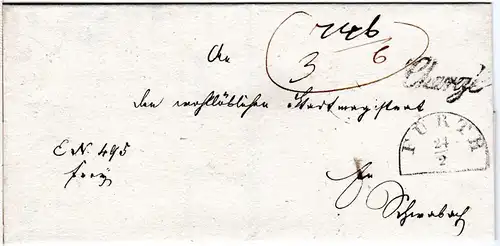 An
3 6
Chargé
den wohllöblichen Stadtmagistrat
FÜRTH
24
2
E.N. 495
frey
Schwabach